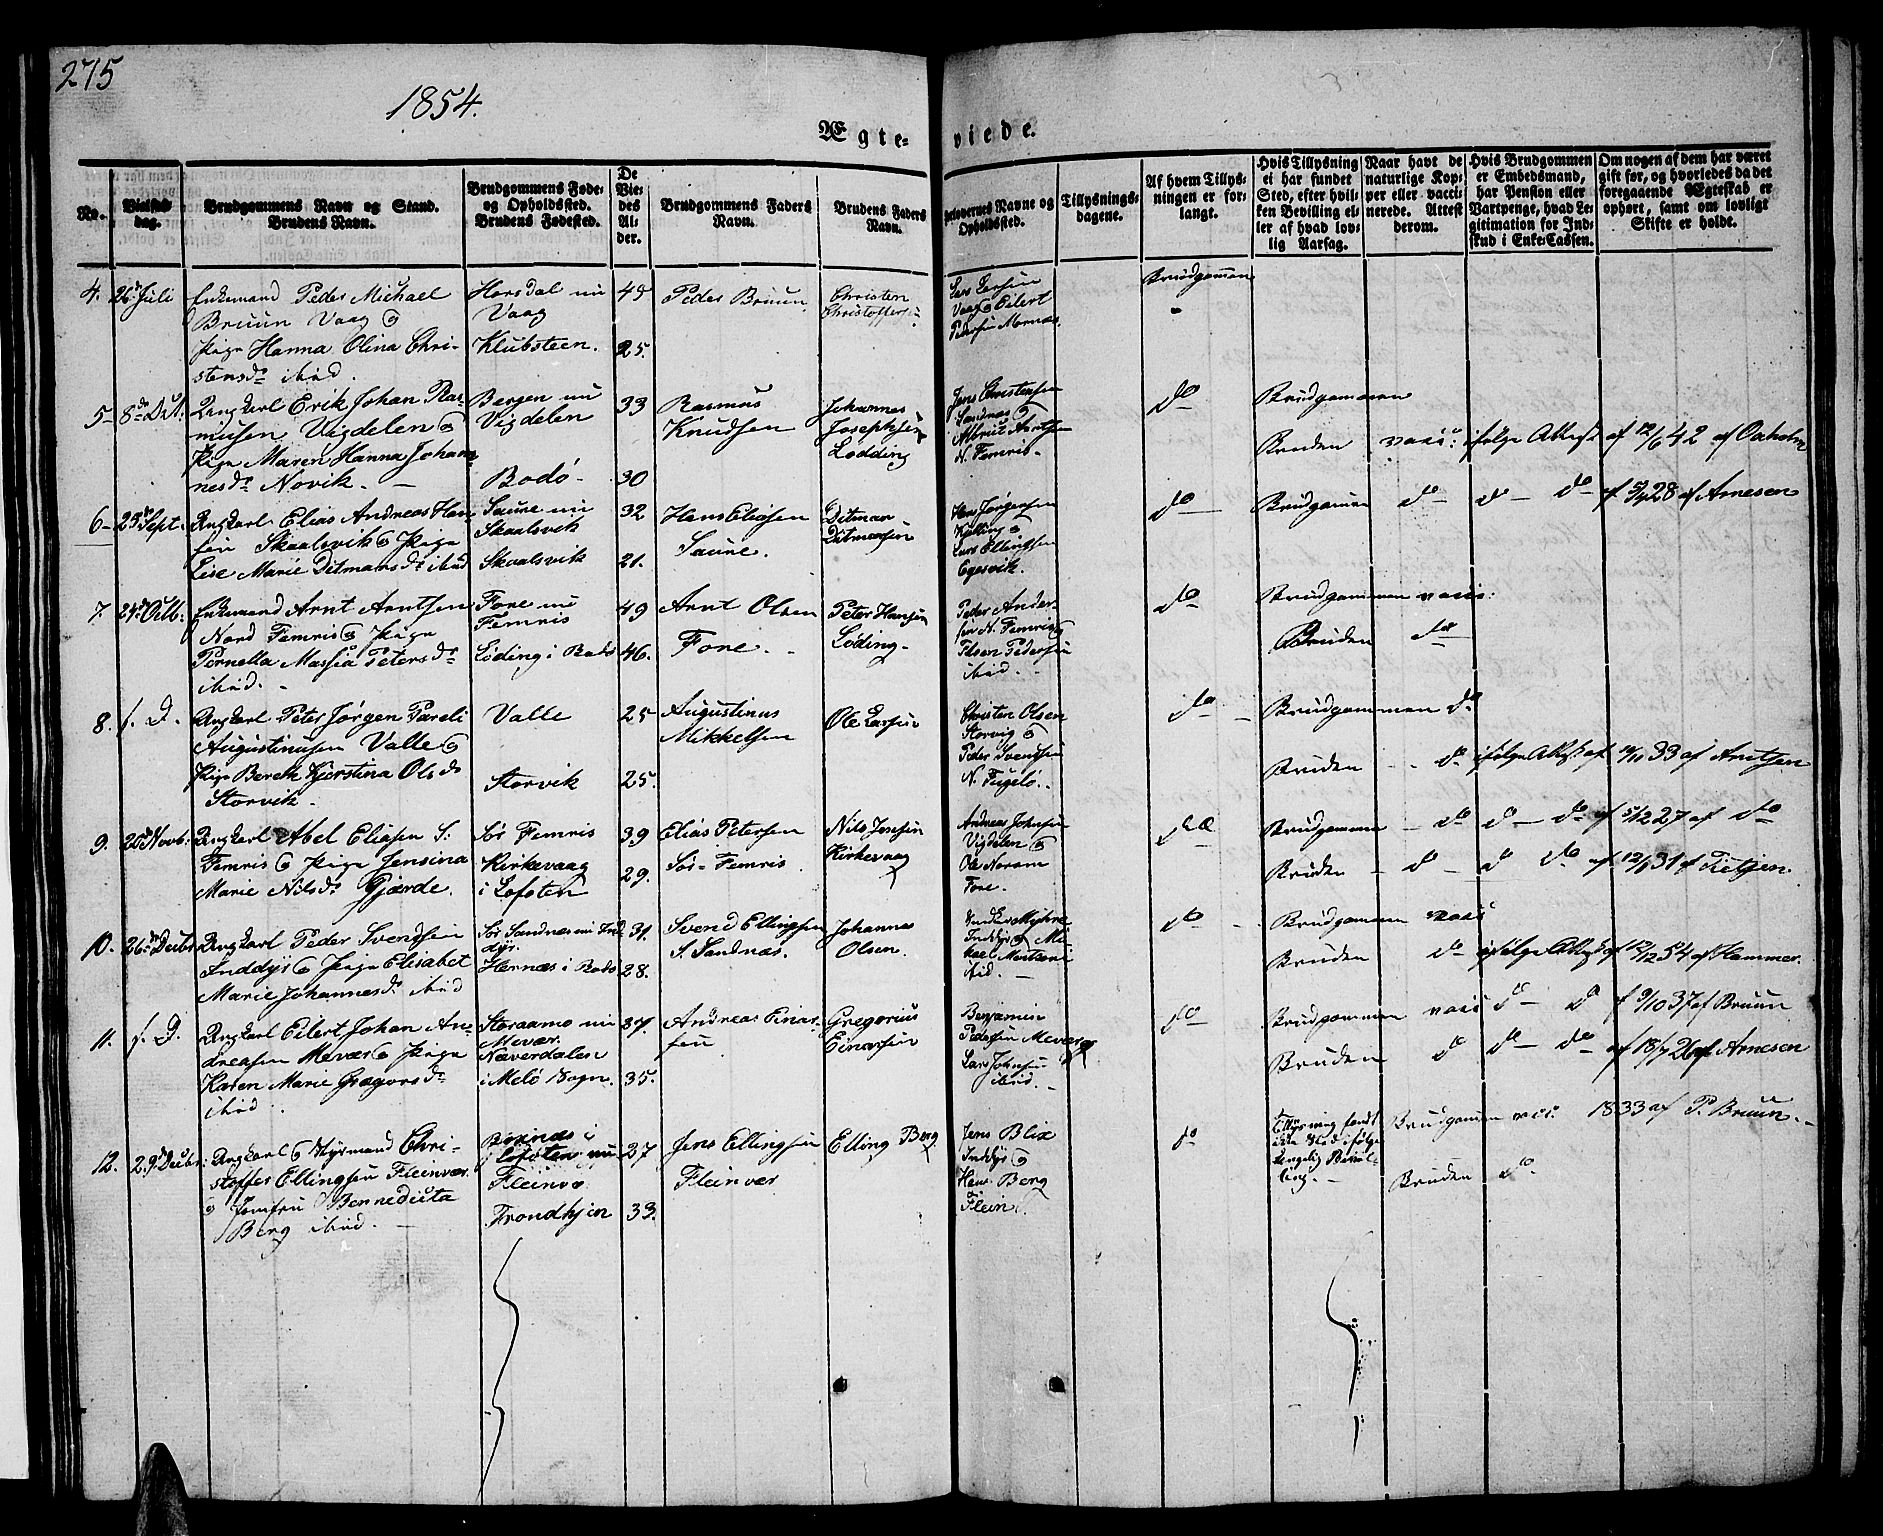 275
1854.
Ægte-
viede.
No.
Vielses-
dag.
Brudgommens Navn og Stand.
Brudens Navn.
Brudgommens Føde-
og Opholdssted.
Brudens Fødested.
De
Vie-
des
Al-
der.
Brudgommens Faders
Navn.
Brudens Faders
Navn.
Forlovernes Navne og
Opholdssted.
Tillysnings-
dagene.
Af hvem Tillys-
ningen er for-
langt.
Hvis Tillysning
ei har fundet
Sted, efter hvil-
ken Bevilling el-
ler af hvad lov-
lig Aarsag.
Naar havt de
naturlige Kop-
per eller vacci-
nerede. Attest
derom.
Hvis Brudgommen
er Embedsmand,
har Pension eller
Vartpenge, hvad Le-
gitimation for Ind-
skud i Enke-Cassen.
Om nogen af dem har været
gift før, og hvorledes da det
foregaaende Ægteskab er
ophørt, samt om lovligt
Skifte er holdt.
4. 26 Juli
Enkemand Peder Michael
Bruun Vaag og
Pige Hanna Olina Chri-
stensd. ibid.
Horsdal nu
Vaag
Klubsteen.
49
25.
Peder Bruun
Christen
Christoffersen
Lars Larsen
Vaag og Eilert
Petersen Mornæs.
Brudgommen
5
Ungkarl Erik Johan Ras-
musen Vigdelen og
Pige Maren Hanna Johan-
nesd. Novik.
Bergen nu
Vigdelen
Bodö.
33
30
Rasmus
Knudsen
Johannes
Josephsen
Lødding
Jens Christensen
Sandnæs og
Albrigt Arntsen
N. Femris.
do
Brudgommen
Bruden vacc: ifølge Attest af 12/6 42 af Oxholm
6 Sept.
Ungkarl Elias Andreas Han-
sen Skaalsvik og Pige
Lise Marie Ditmansd. ibid
Saure nu
Skaalsvik
Skaalsvik
32
21.
Hans Eliasen
Saure.
Ditman
Ditmansen
Hans Jørgensen
Kjelling og
Lars Ellingsen
Egesvik.
do
Brudgommen do do do af 28 af Arnesen
7. Octb.
Enkemand Arnt Arntsen
Nord Femris og Pige
Pernella Massia Petersd.
ibid.
Fore nu
Femris
Løding i Bodø
49
46.
Arnt Olsen
Fore.
Peter Hansen
Løding.
Peder Ander-
sen N. Femris og
Pedersen
ibid.
do
Brudgommen vacc:
Bruden do
8. s. D.
Ungkarl Peter Jørgen Pareli
Augustinusen Valle og
Pige Bereth Kjerstina Olsd.
Storvik.
Valle
Storvik
25
25.
Augustinus
Mikkelsen
Ole Larsen
Christen Olsen
Storvig og
Peder Svendsen
N. Fugelø.
do
Brudgommen do
Bruden do ifølge Attest af 33 af Arntsen
9. 20 Novb.
Ungkarl Abel Eliasen S:
Femris og Pige Jensina
Marie Nilsd. Gjærde.
Sør Femris
Kirkevaag
i Lofoten
39
29.
Elias Petersen
Sør-Femris
Nils Josefsen
Kirkevaag
Andreas Johnsen
Vigdelen og
Ole Norum
Fore.
do
Brudgommen do do do af 5/12 27 af do
Bruden do do do af 31 af Tietjen
10. 26 Decbr.
Ungkarl Peder Svendsen
Inddyr og Pige Elisabet
Marie Johannesd. ibid
Sør Sandnæs nu Ind-
dyr.
Hernæs i Bodø
31.
28.
Svend Ellingsen
S. Sandnæs.
Johannes
Olsen.
Myhre
Inddyr og Mi-
kael
ibid.
do
Brudgommen vacc:
Bruden do ifølge Attest af 12/12 54 af Hammer.
11. s. D.
Ungkarl Eilert Johan An-
dreasen Mevær og Pige
Karen Marie Gregorsd.
ibid.
Storaamo nu
Mevær.
Næverdalen
i Melö Sogn.
37.
35.
Andreas Einar-
sen
Gregorius
Einarsen
Benjamin
Pedersen Mevær og
Lars Johnsen
ibid.
do
Brudgommen vacc do do af 9/10 37 af Bruun
Bruden do do do af 18/7 26 af Arnesen
12. 29 Decbr.
Ungkarl og Styrmand Chri-
stoffer Ellingsen Fleinvær
og Jomfru Bennedicta
Berg ibid.
i
Lofoten nu
Fleinvær
Trondhjem
37
33.
Jens Ellingsen
Fleinvær
Elling Berg
Jens Blix
Inddyr og
Hans Berg
Flein.
do
Tillysning fandt
ikke Sted ifølge
kongelig Bevil-
ling.
Brudgommen vacc. 1833 af P. Bruun.
Bruden do